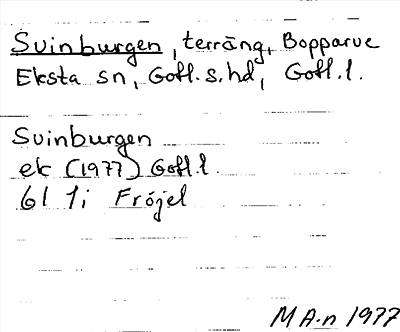 Svinburgen, terräng, Bopparve
Eksta sn, Gotl. s. hd, Gotl. l.
Svinburgen
ek (1977) Gotl. l
6I 1i Fröjel
M A-n 1977